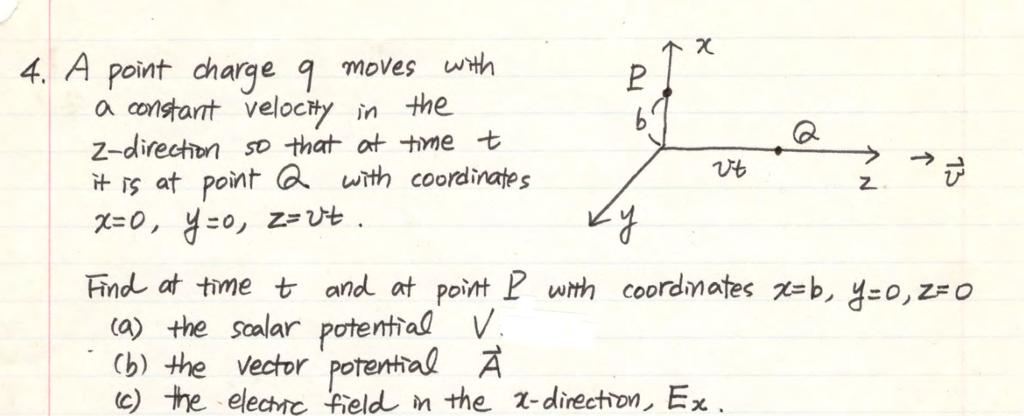 4. A point charge q moves with
a constant velocity in the
z-direction so that at time t
it is at point Q with coordinates
x=0, y=0, z=vt.
x
P
b
Q
vt
z
→ v⃗
y
Find at time t and at point P with coordinates x=b, y=0, z=0
(a) the scalar potential V.
(b) the vector potential A⃗
(c) the electric field in the x-direction, Ex.